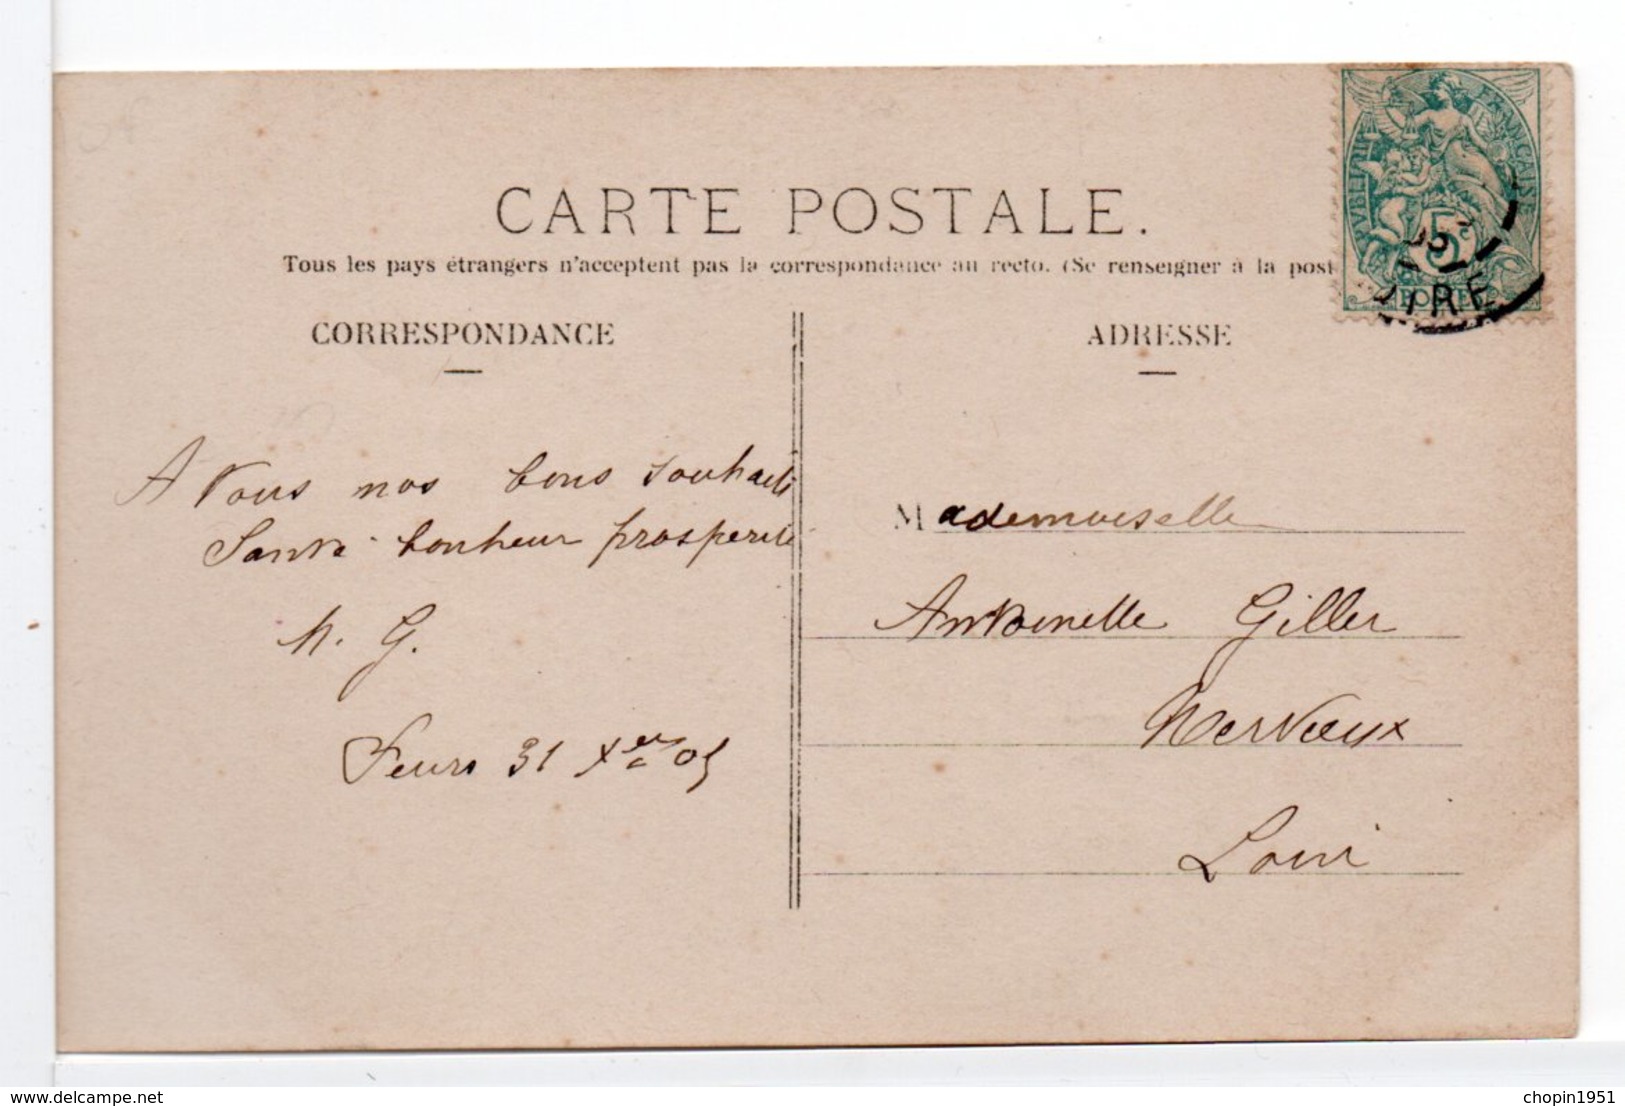 CARTE POSTALE.
Tous les pays étrangers n'acceptent pas la correspondance au recto. (Se renseigner à la post
CORRESPONDANCE
A Vous nos bons souhaits
Santé bonheur prosperité
M. G.
Feurs 31 Xbre 05
ADRESSE
Mademoiselle
Antoinette Giller
Nervieux
Loire
RÉPUBLIQUE FRANÇAISE
5c
POSTES
05
OIRE
delcampe.net
chopin1951